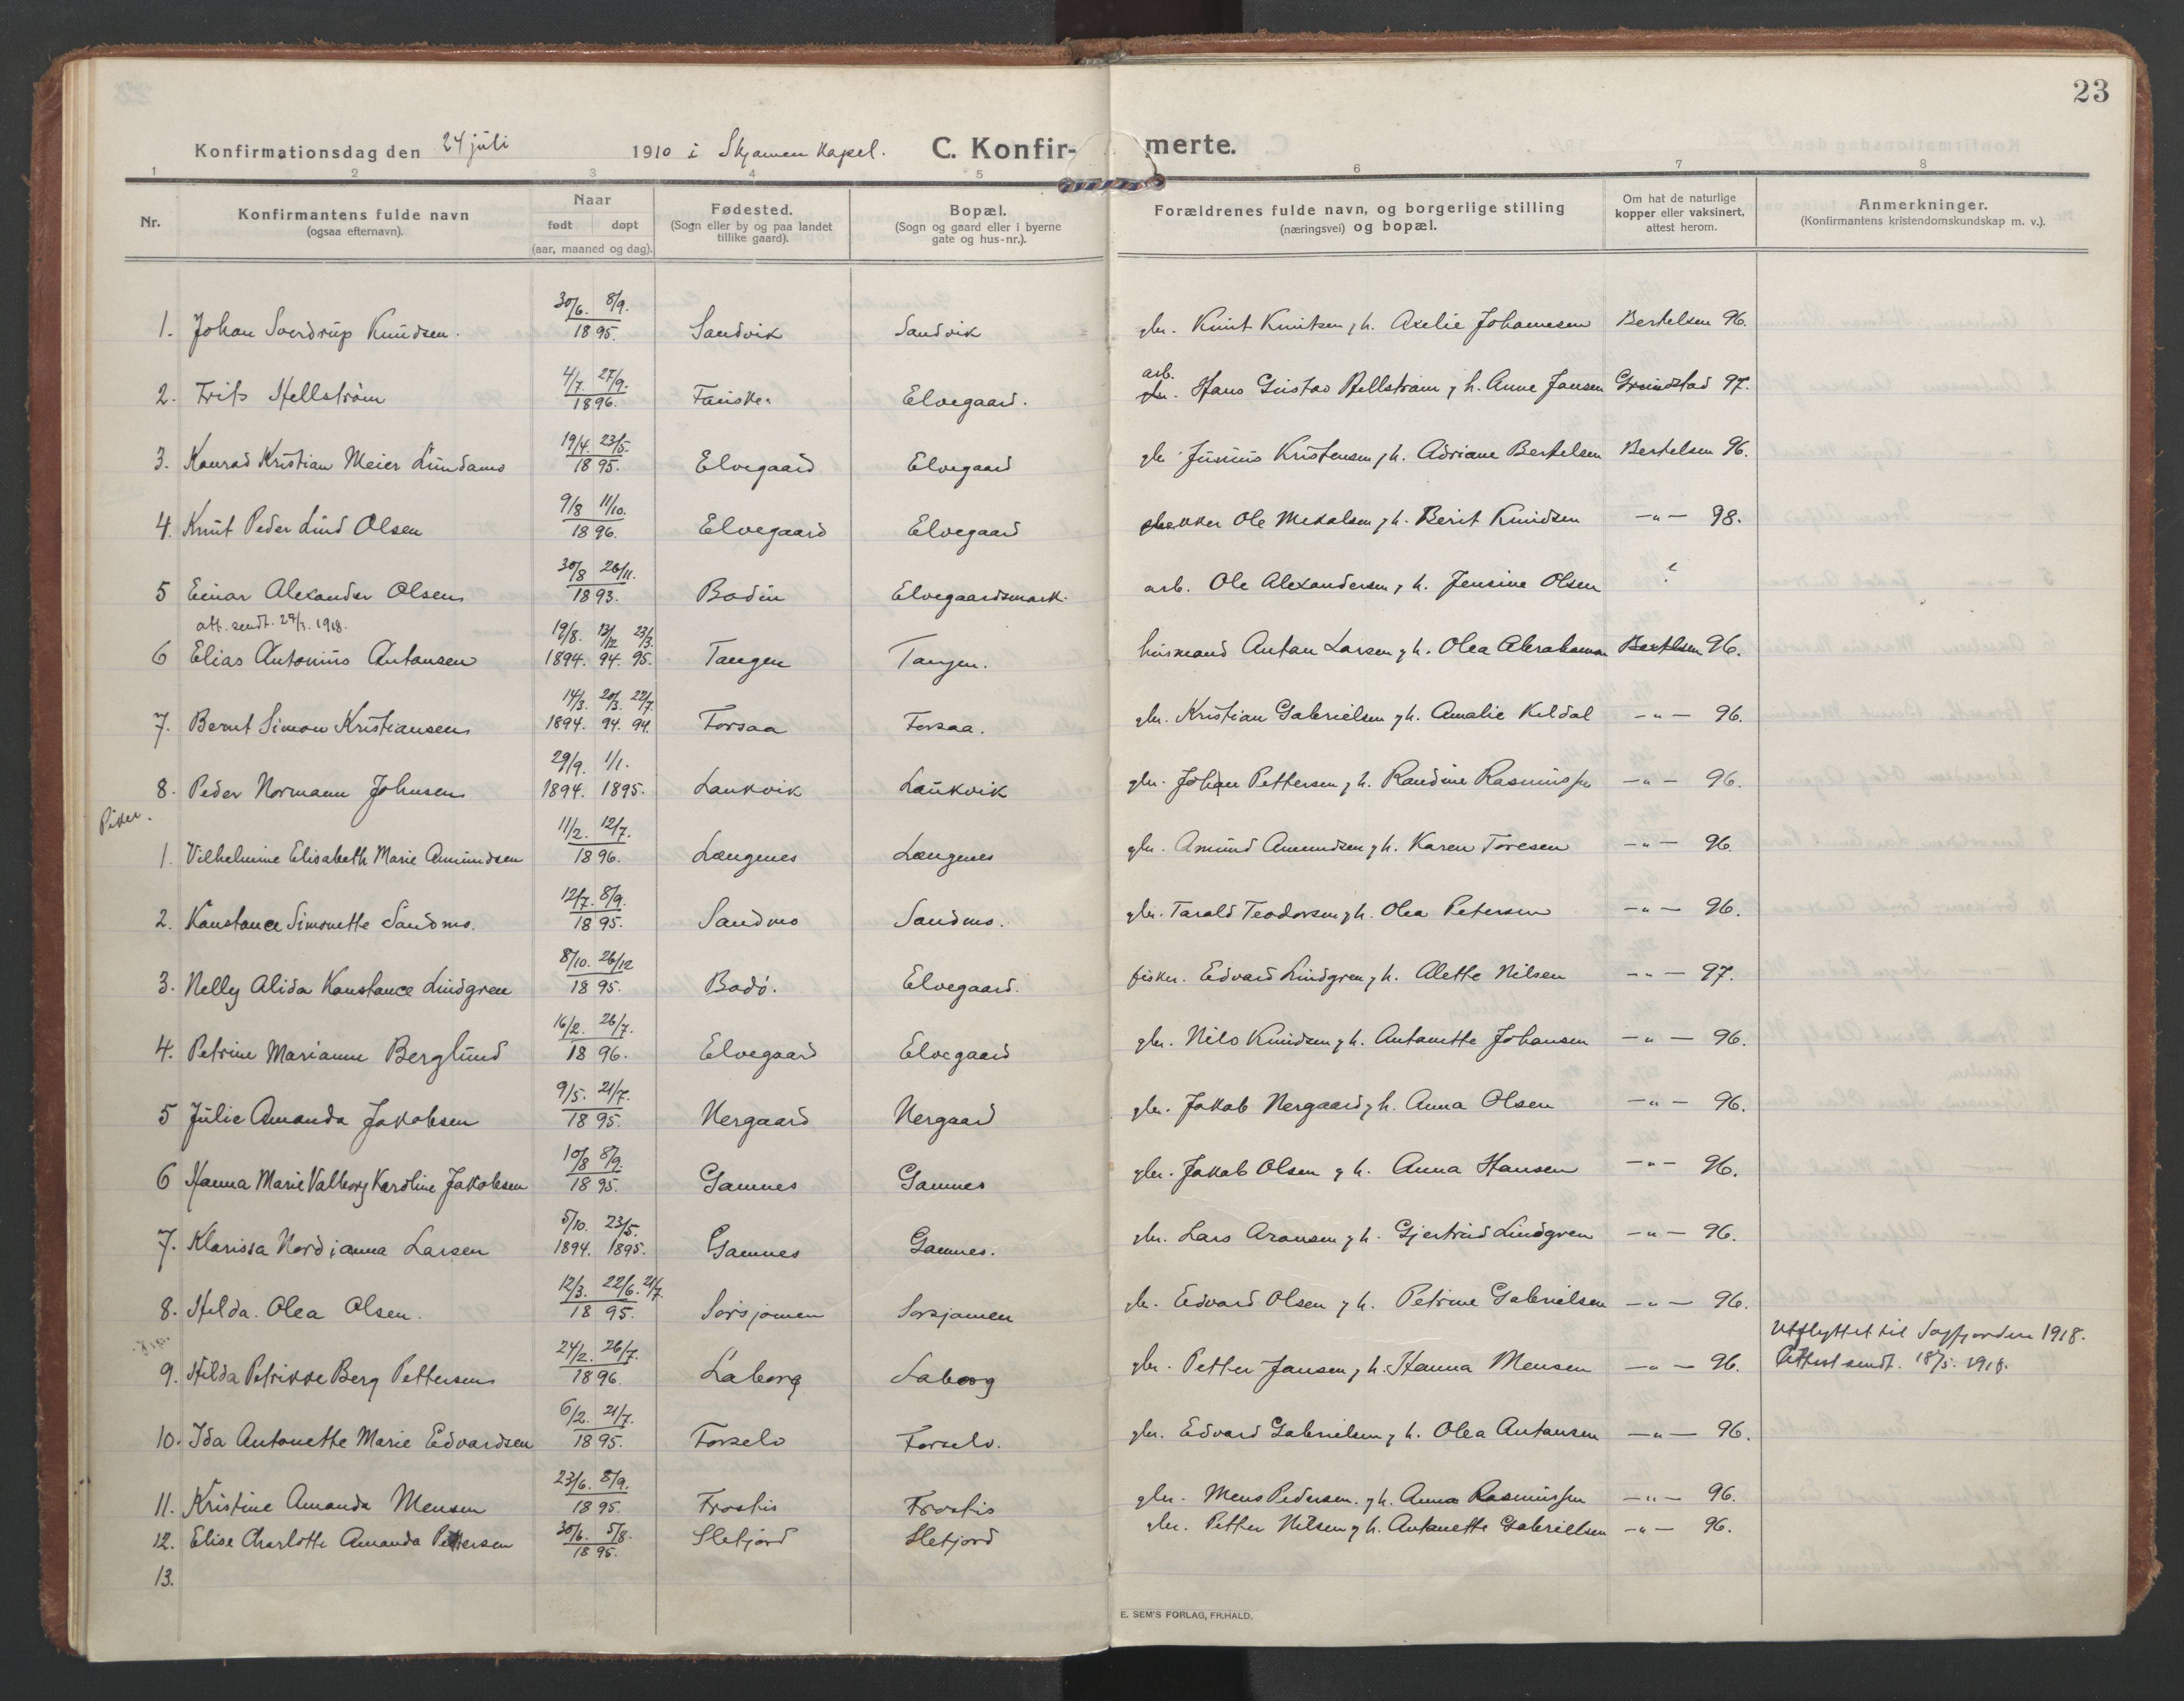 23
Konfirmationsdag den 24 juli 1910 i Skjomen Kapel. C. Konfir- merte.
1 2 3 4 5 6 7 8
Nr. Konfirmantens fulde navn (ogsaa efternavn). Naar født døpt (aar, maaned og dag). Fødested. (Sogn eller by og paa landet tillike gaard). Bopæl. (Sogn og gaard eller i byerne gate og hus-nr.). Forældrenes fulde navn, og borgerlige stilling (næringsvei) og bopæl. Om hat de naturlige kopper eller vaksinert, attest herom. Anmerkninger. (Konfirmantens kristendomskundskap m. v.).
1. Johan Sverdrup Knudsen. 30/6. 8/9. 1895. Sandvik Sandvik gbr. Knut Knutsen, h. Axelie Johannesen Bertelsen 96.
2. Frits Hellstrøm 4/7. 27/9. 1896. Fauske. Elvegaard. arb. Hans Gustav Hellstrøm, h. Anne Jansen Grundstad 97.
3. Konrad Kristian Meier Lundamo 19/4. 23/5. 1895. Elvegaard Elvegaard gbr. Junius Kristensen, h. Adriane Bertelsen Bertelsen 96.
4. Knut Peder Lind Olsen 9/8 11/10. 1896. Elvegaard Elvegaard Ole Mikalsen, h. Berit Knudsen -"- 98.
5 Einar Alexander Olsen 30/8 26/11. 1893. Bodin Elvegaardsmark. arb. Ole Alexandersen, h. Jensine Olsen ?
att. sendt. 1918.
6 Elias Antonius Antonsen 19/8. 13/12 23/3. 1894. 94. 95. Tangen Tangen. husmand Anton Larsen, h. Olea Abrahamsen Bertelsen 96.
7. Bernt Simon Kristiansen 14/3. 20/3. 22/7. 1894. 94. 94. Forsaa Forsaa. gbr. Kristian Gabrielsen, h. Amalie Kildal -"- 96.
8. Peder Normann Johnsen 29/9. 1/1. 1894. 1895. Lankvik Lankvik gbr. Johan Pettersen, h. Randine Rasmussen -"- 96.
Piker.
1. Vilhelmine Elisabeth Marie Amundsen 11/2. 12/7. 1896. Længenes Længenes gbr. Amund Amundsen, h. Karen Toresen -"- 96.
2. Konstance Simonette Sandmo. 12/7. 8/9. 1895. Sandmo Sandmo. gbr. Tarald Teodorsen, h. Olea Petersen -"- 96.
3. Nelly Alida Konstance Lindgren 8/10. 26/12 1895. Bodø. Elvegaard. fisker. Edvard Lindgren, h. Alette Nilsen -"- 97.
4. Petrine Marianne Berglund 16/2. 26/7. 1896. Elvegaard Elvegaard gbr. Nils Knudsen, h. Antonette Johansen -"- 96.
5 Julie Amanda Jakobsen 9/5. 21/7. 1895. Nergaard Nergaard gbr. Jakob Nergaard, h. Anna Olsen -"- 96.
6 Hanna Marie Valborg Karoline Jakobsen 10/8 8/9. 1895. Gamnes Gamnes gbr. Jakob Olsen, h. Anna Hansen -"- 96.
7. Klarissa Nordianna Larsen 5/10. 23/5. 1894. 1895. Gamnes Gamnes. gbr. Lars Aronsen, h. Gjertrud Lindgren -"- 96.
8. Hilda Olea Olsen. 12/3. 22/6. 21/7. 1895. Sørsjomen Sørsjomen gbr. Edvard Olsen, h. Petrine Gabrielsen -"- 96.
9. Hilda Petrikke Berg Pettersen 24/2. 26/7. 1896. Laberg Laberg gbr. Petter Jansen, h. Hanna Monsen -"- 96. Utflyttet til Sagfjorden 1918.
Attest sendt. 18/5. 1918.
10. Ida Antonette Marie Edvardsen 6/2. 21/7. 1895. Forselv Forselv. gbr. Edvard Gabrielsen, h. Olea Antonsen -"- 96.
11. Kristine Amanda Monsen 23/6. 8/9. 1895. Frostis Frostis gbr. Mons Pedersen, h. Anna Rasmussen -"- 96.
12. Elise Charlotte Amanda Pettersen 30/6. 5/8. 1895. Sletjord Sletjord gbr. Petter Nilsen, h. Antonette Gabrielsen -"- 96.
13.
E. SEM'S FORLAG, FR.HALD.